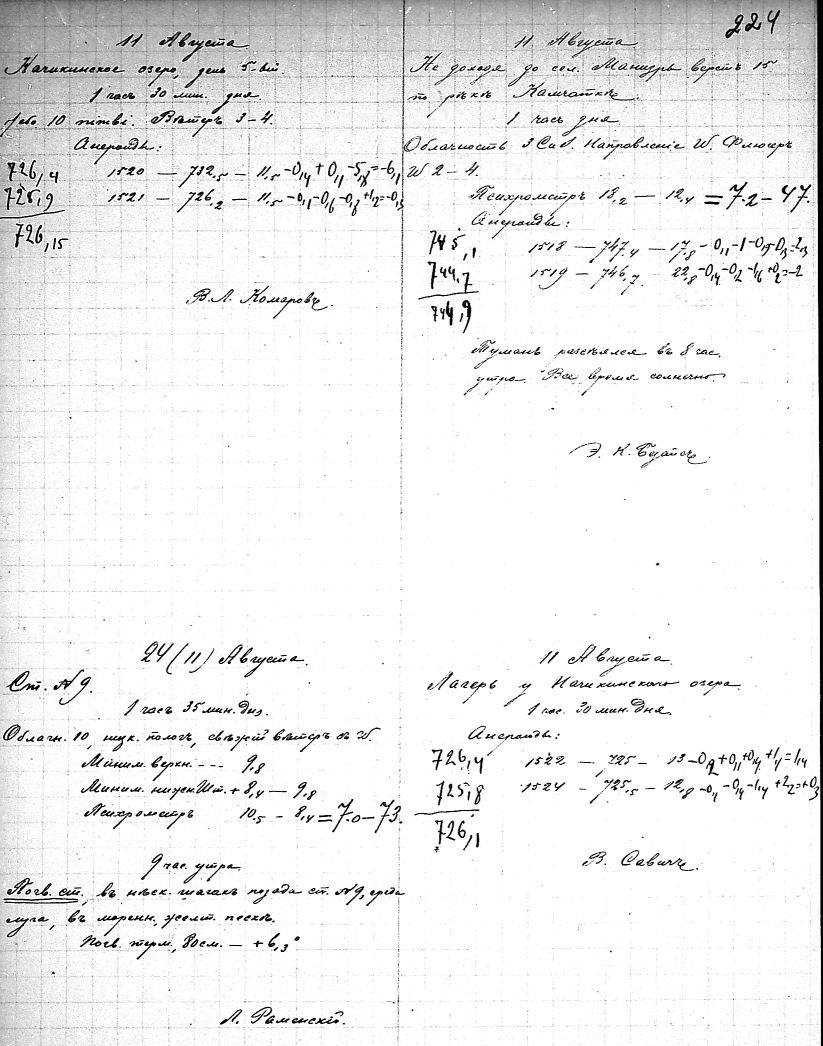 224
11 Августа
Начикинское озеро, день 5-ый.
1 часъ 30 мин. дня.
10 Вѣтеръ 3-4.
Анероиды:
726,4 1520 — 732,5 — 11,5 -0,4 +0,1 -5,8 = -6,1
725,9 1521 — 726,2 — 11,5 -0,1 -0,6 -0,8 +1,2 = -0,3
726,15
В. Л. Комаровъ.
11 Августа
Не доходя до сел. Машуры верстъ 15
по рѣкѣ Камчаткѣ.
1 часъ дня
Облачность 3 Направленіе W. Флюгеръ
W 2-4.
Психрометръ 18,2 — 12,4 = 7.2 - 47.
Анероиды:
745,1 1518 — 747,4 — 17,8 -0,1 -1 -0,9 -0,3 = -2,3
744,7 1519 — 746,7 22,8 -0,4 -0,2 -1,6 +0,2 = -2
744,9
Туманъ разсѣялся въ 8 час.
утра. Все время солнечно.
Э. К. Безаисъ.
24 (11) Августа.
Ст. № 9.
1 часъ 35 мин. дня.
Облачн. 10, низк. пологъ, свѣжій вѣтеръ съ W.
Миним. верхн. --- 9,8
Миним. нижн. Шт. + 8,4 — 9,8
Психрометръ 10,5 - 8,4 = 7.0 - 73.
9 час. утра
Почв. ст., въ нѣск. шагахъ позади ст. № 9, среди
луга, въ моренн. желт. пескѣ.
Почв. терм., 80 см. — + 6,3°
Л. Раменскій.
11 Августа.
Лагерь у Начикинского озера.
1 час. 30 мин. дня.
Анероиды:
726,4 1522 — 725 — 13 -0,2 +0,1 +0,4 +1,1 = 1,4
725,8 1524 — 725,5 — 12,8 -0,1 -0,4 -1,4 +2,2 = +0,3
726,1
В. Савичъ.